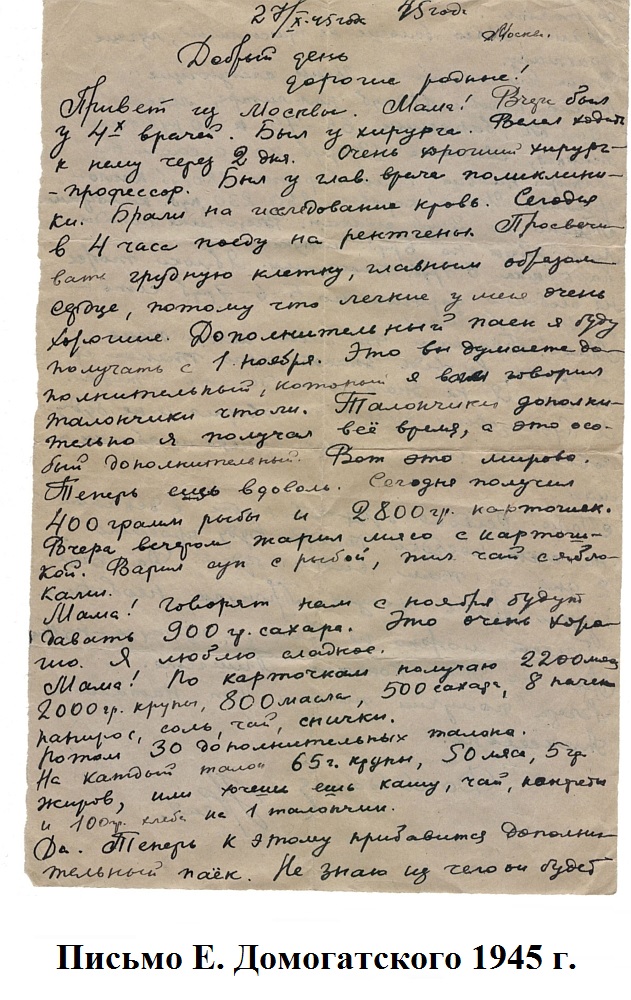 27/X-45 года 45 года
Москва.
Добрый день
дорогие родные!
Привет из Москвы. Мама! Вчера был
у 4х врачей. Был у хирурга. Велел ходить
к нему через 2 дня. Очень хороший хирург-
-профессор. Был у глав. врача поликлини-
ки. Брали на исследование кровь. Сегодня
в 4 часа поеду на рентгены. Просвечи
вать грудную клетку, главным образом
сердце, потому что легкие у меня очень
хорошие. Дополнительный паек я буду
получать с 1 ноября. Это вы думаете до-
полнительный, который я вам говорил
талончики чтоли. Талончики дополни-
тельно я получал всё время, а это осо-
бый дополнительный. Вот это мирово.
Теперь ешь вдоволь. Сегодня получил
400 грамм рыбы и 2800 гр. картошек.
Вчера вечером жарил мясо с картош-
кой. Варил суп с рыбой, пил чай с ябло-
ками.
Мама! говорят нам с ноября будут
давать 900 гр. сахара. Это очень хоро-
шо. Я люблю сладкое.
Мама! По карточкам получаю 2200 мяса
2000 гр. крупы, 800 масла, 500 сахара, 8 пачек
папирос, соль, чай, спички.
Потом 30 дополнительных талона.
На каждый талон 65 г. крупы, 50 мяса, 5 гр
жиров, или хочешь ешь кашу, чай, конфеты
и 100 гр. хлеба на 1 талончик.
Да. Теперь к этому прибавится дополни-
тельный паёк. Не знаю из чего он будет
Письмо Е. Домогатского 1945 г.